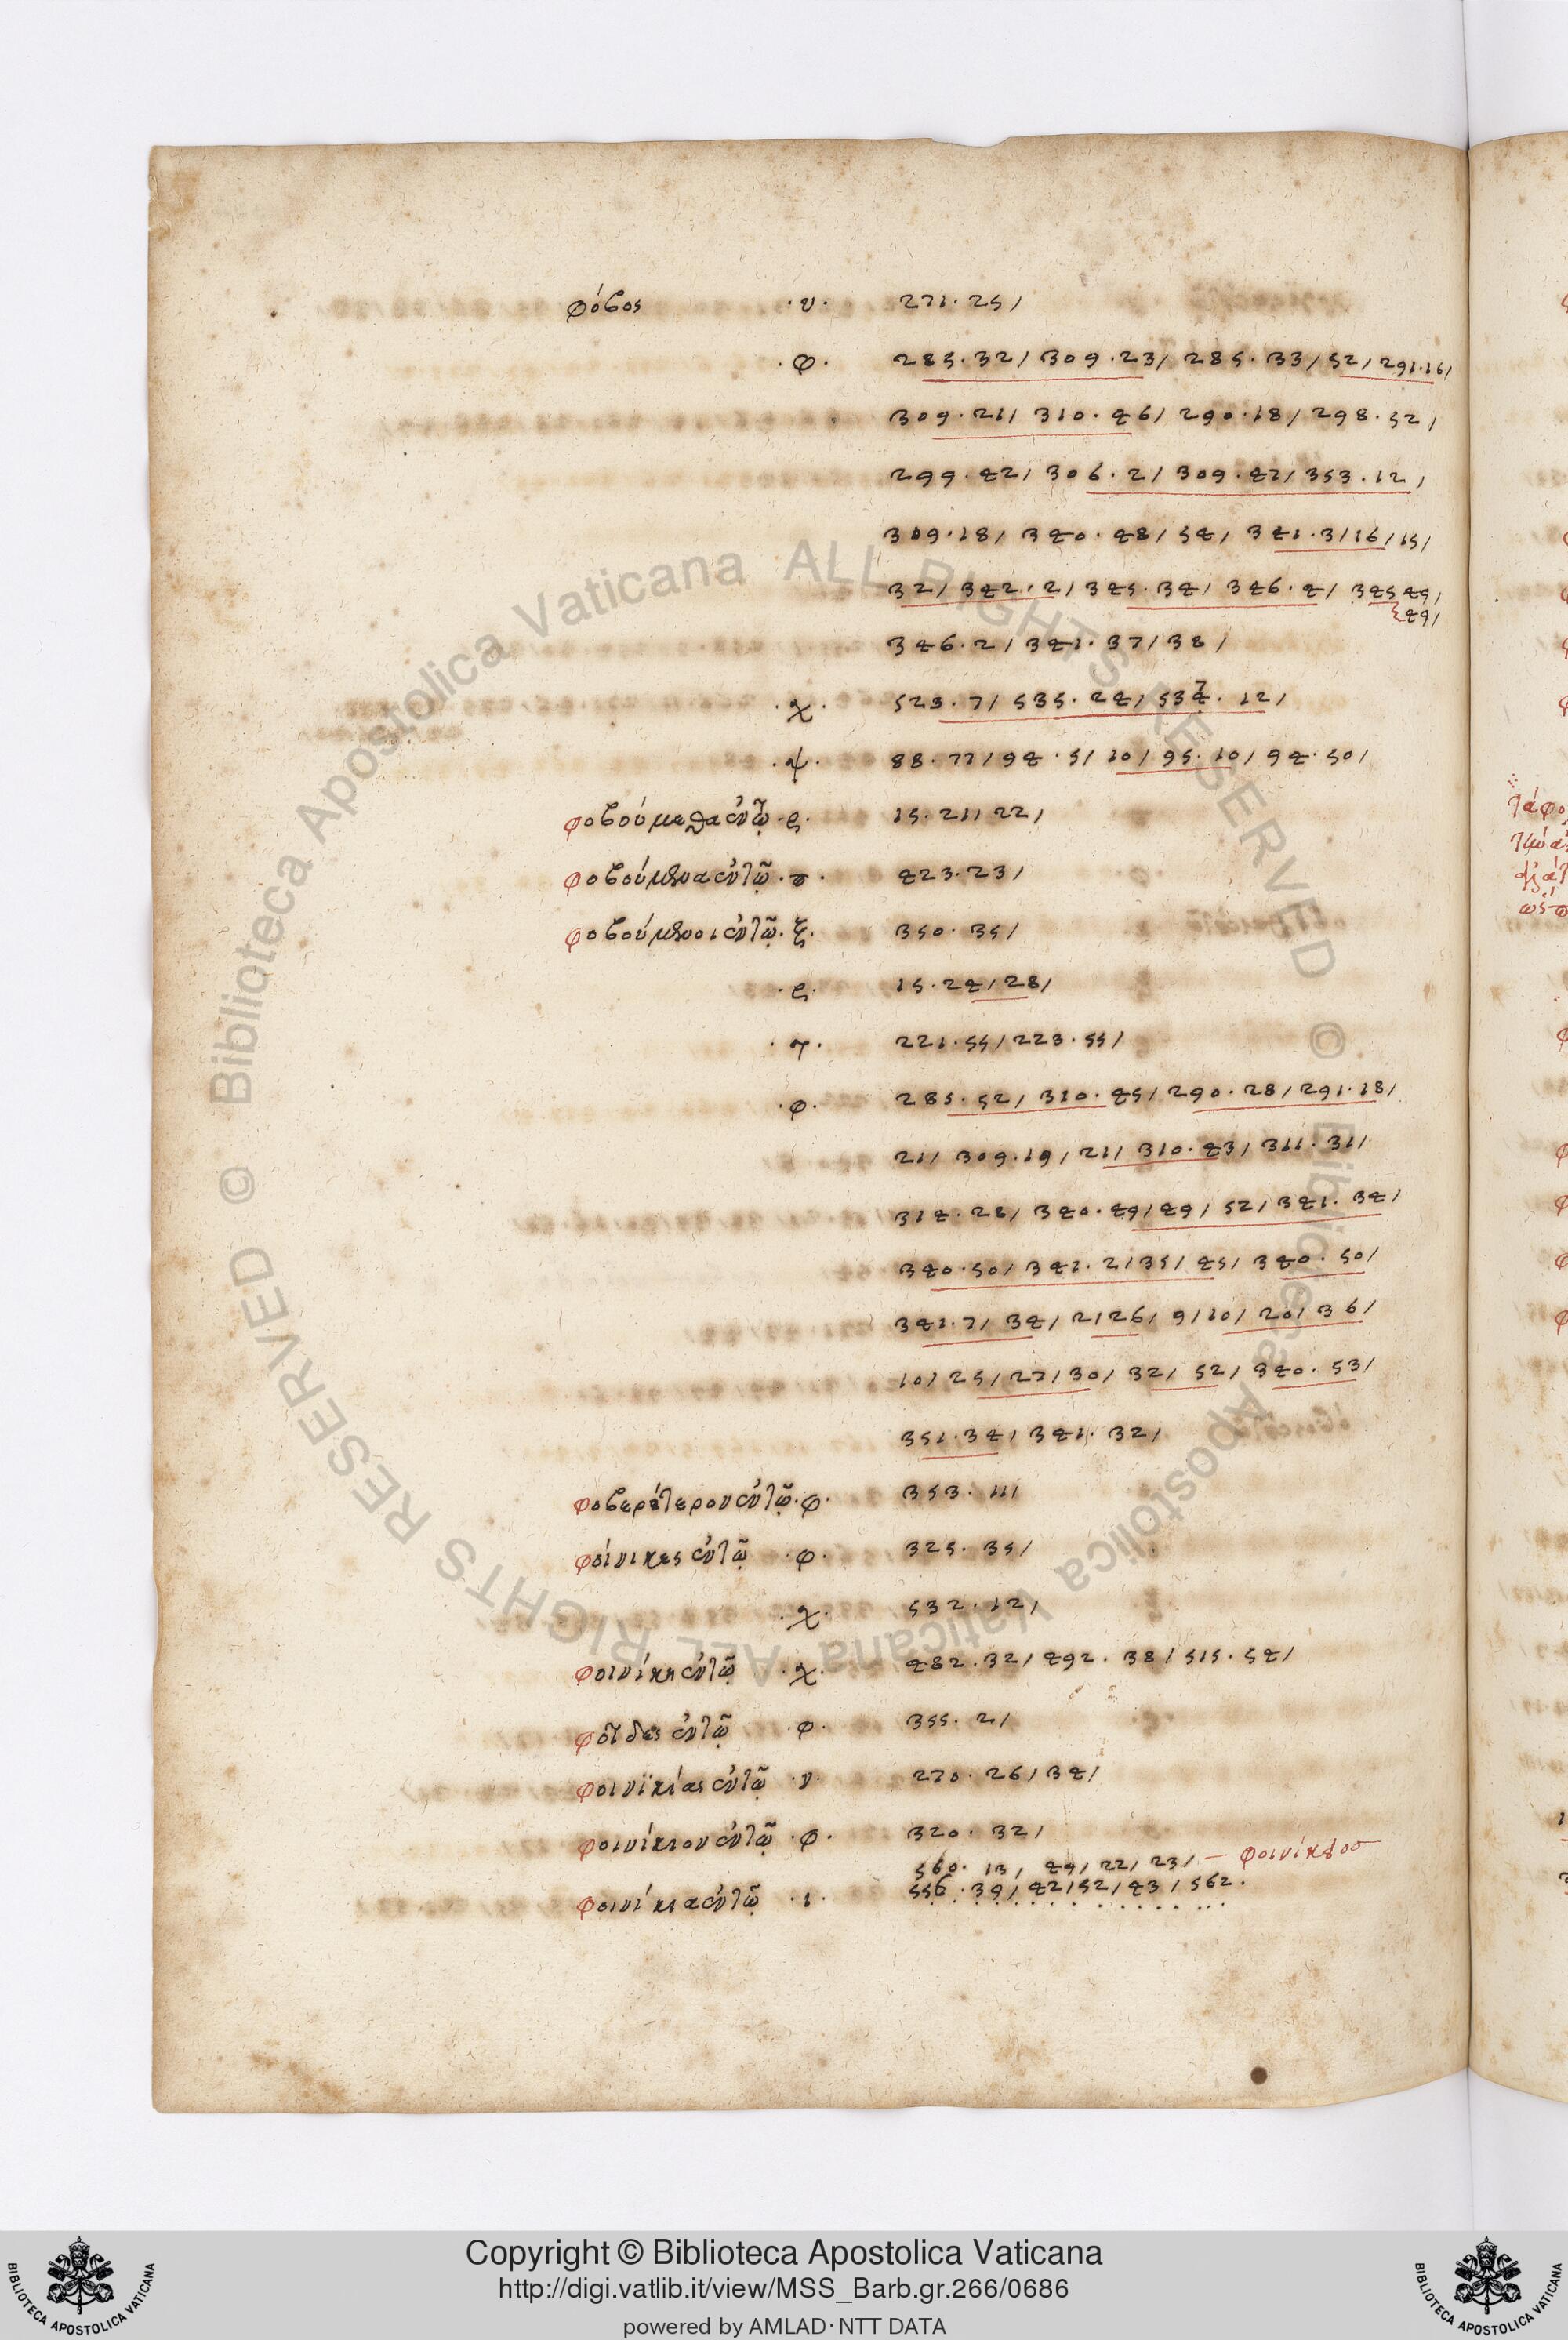 φόβος ·υ· 271·25/
·φ· 285·32/ 309·23/ 285·33/ 52/ 291·16/
309·21/ 310·46/ 290·18/ 298·52/
299·42/ 306·2/ 309·47/ 353·12/
309·18/ 340·48/ 54/ 341·3/ 16/ 15/
32/ 342·2/ 345·34/ 346·4/ 345 49/
49/
346·2/ 341·37/ 38/
·χ· 523·7/ 535·24/ 534·12/
·ψ· 88·77/ 94·5/ 10/ 95·10/ 94·50/
φοβούμεθα ἐν τῷ ·ε· 15·21/ 22/
423·23/
·ξ· 350·35/
·ε· 15·24/ 28/
·τ· 221·55/ 223·55/
·φ· 285·52/ 310·45/ 290·28/ 291·18/
21/ 309·19/ 21/ 310·43/ 311·31/
314·28/ 340·49/ 49/ 52/ 341·34/
340·50/ 341·2/ 35/ 45/ 340·50/
341·7/ 34/ 2/ 26/ 9/ 10/ 20/ 36/
10/ 25/ 27/ 30/ 32/ 52/ 340·53/
351·34/ 341·32/
φοβερότερον ἐν τῷ ·φ· 353·11/
φοίνικες ἐν τῷ ·φ· 325·35/
·χ· 532·12/
φοινίκη ἐν τῷ ·χ· 482·32/ 492·38/ 515·54/
φοῖδες ἐν τῷ ·φ· 355·2/
φοινϊκίας ἐν τῷ ·ν· 270·26/ 34/
φοινίκιον ἐν τῷ ·φ· 320·32/
560·13/ 49/ 22/ 23/ —
φοινίκια ἐν τῷ ·ι· 556·39/ 42/ 52/ 43/ 562·
Copyright © Biblioteca Apostolica Vaticana
http://digi.vatlib.it/view/MSS_Barb.gr.266/0686
powered by AMLAD·NTT DATA
© Biblioteca Apostolica Vaticana ALL RIGHTS RESERVED
© Biblioteca Apostolica Vaticana ALL RIGHTS RESERVED
BIBLIOTECA APOSTOLICA VATICANA
BIBLIOTECA APOSTOLICA VATICANA